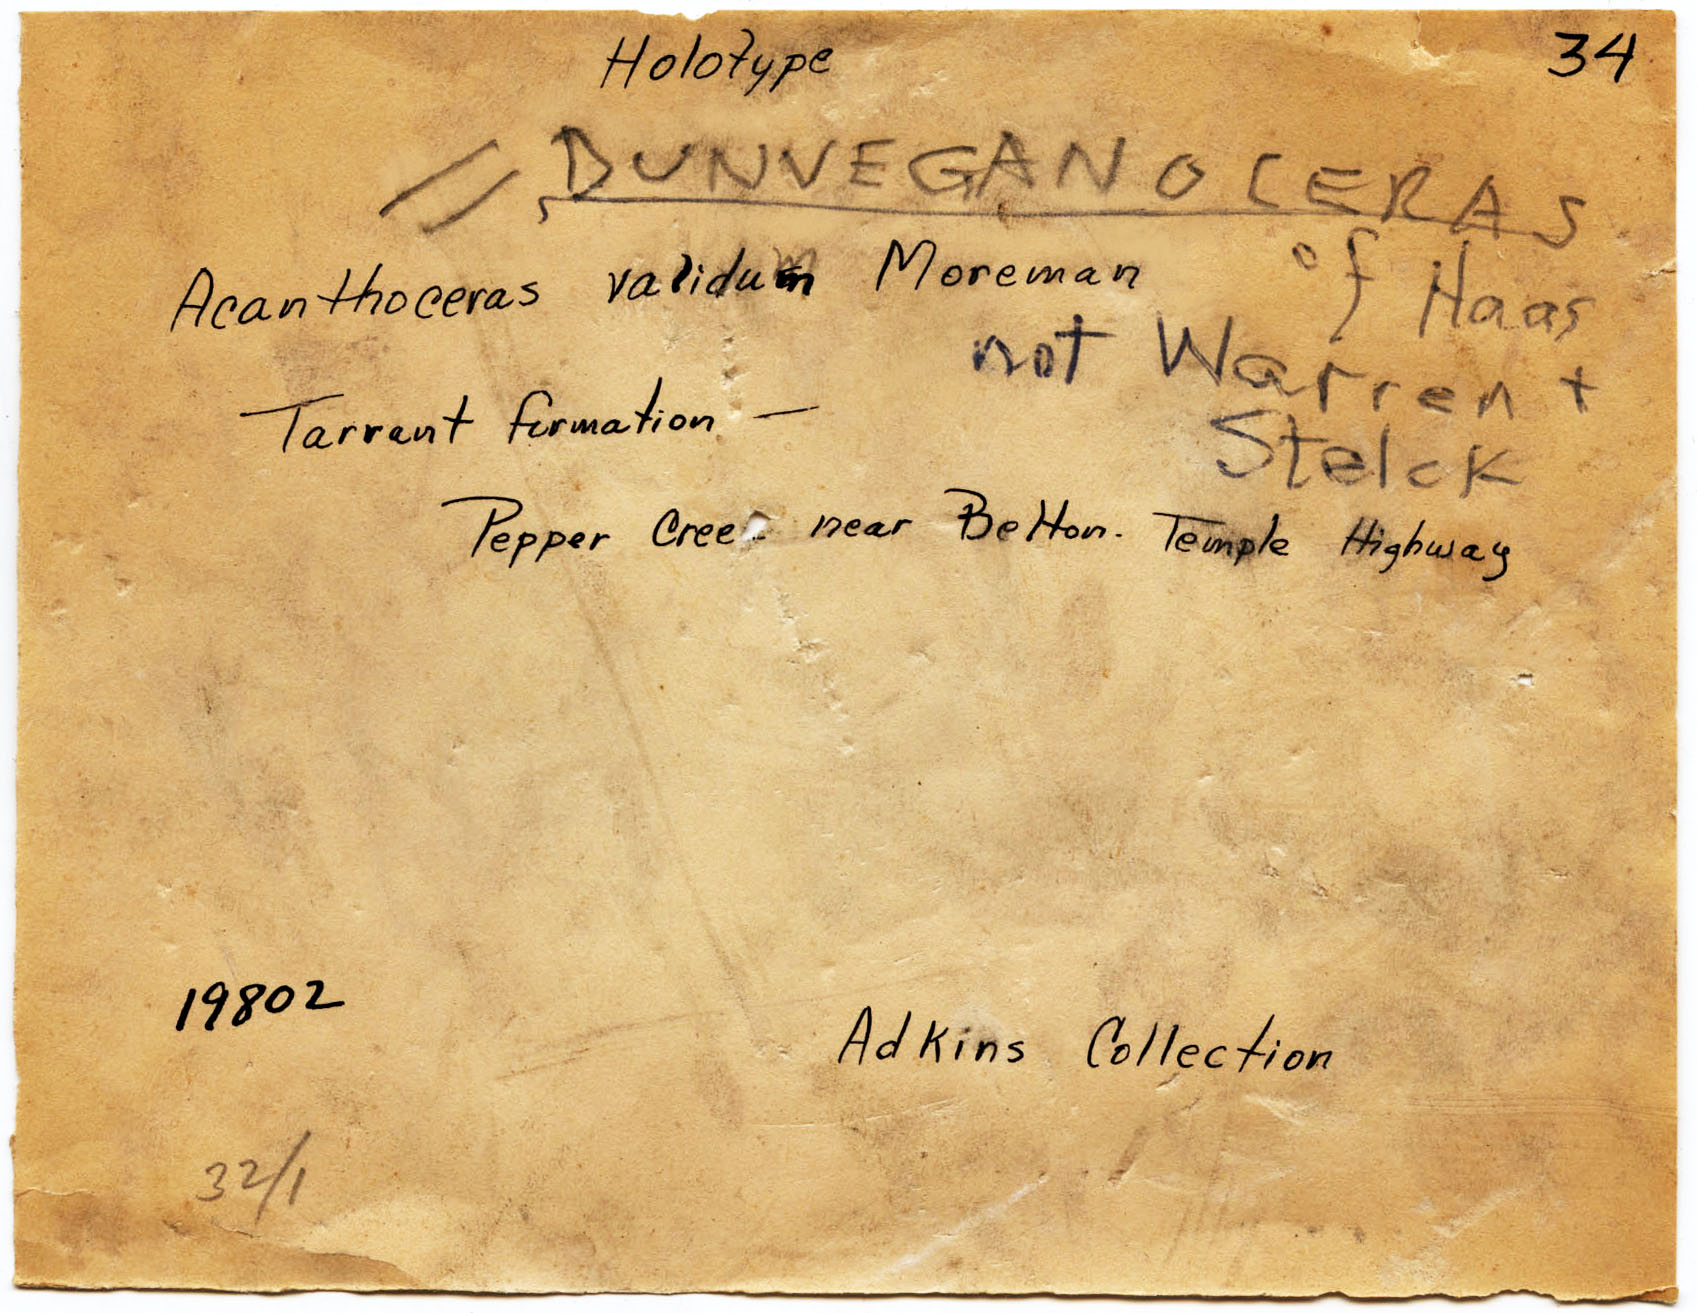 Holotype
34
= "DUNVEGANOCERAS"
of Haas
not Warren +
Stelck
Acanthoceras validum Moreman
Tarrant formation —
Pepper Cree near Belton. Temple Highway
19802
Adkins Collection
32/1